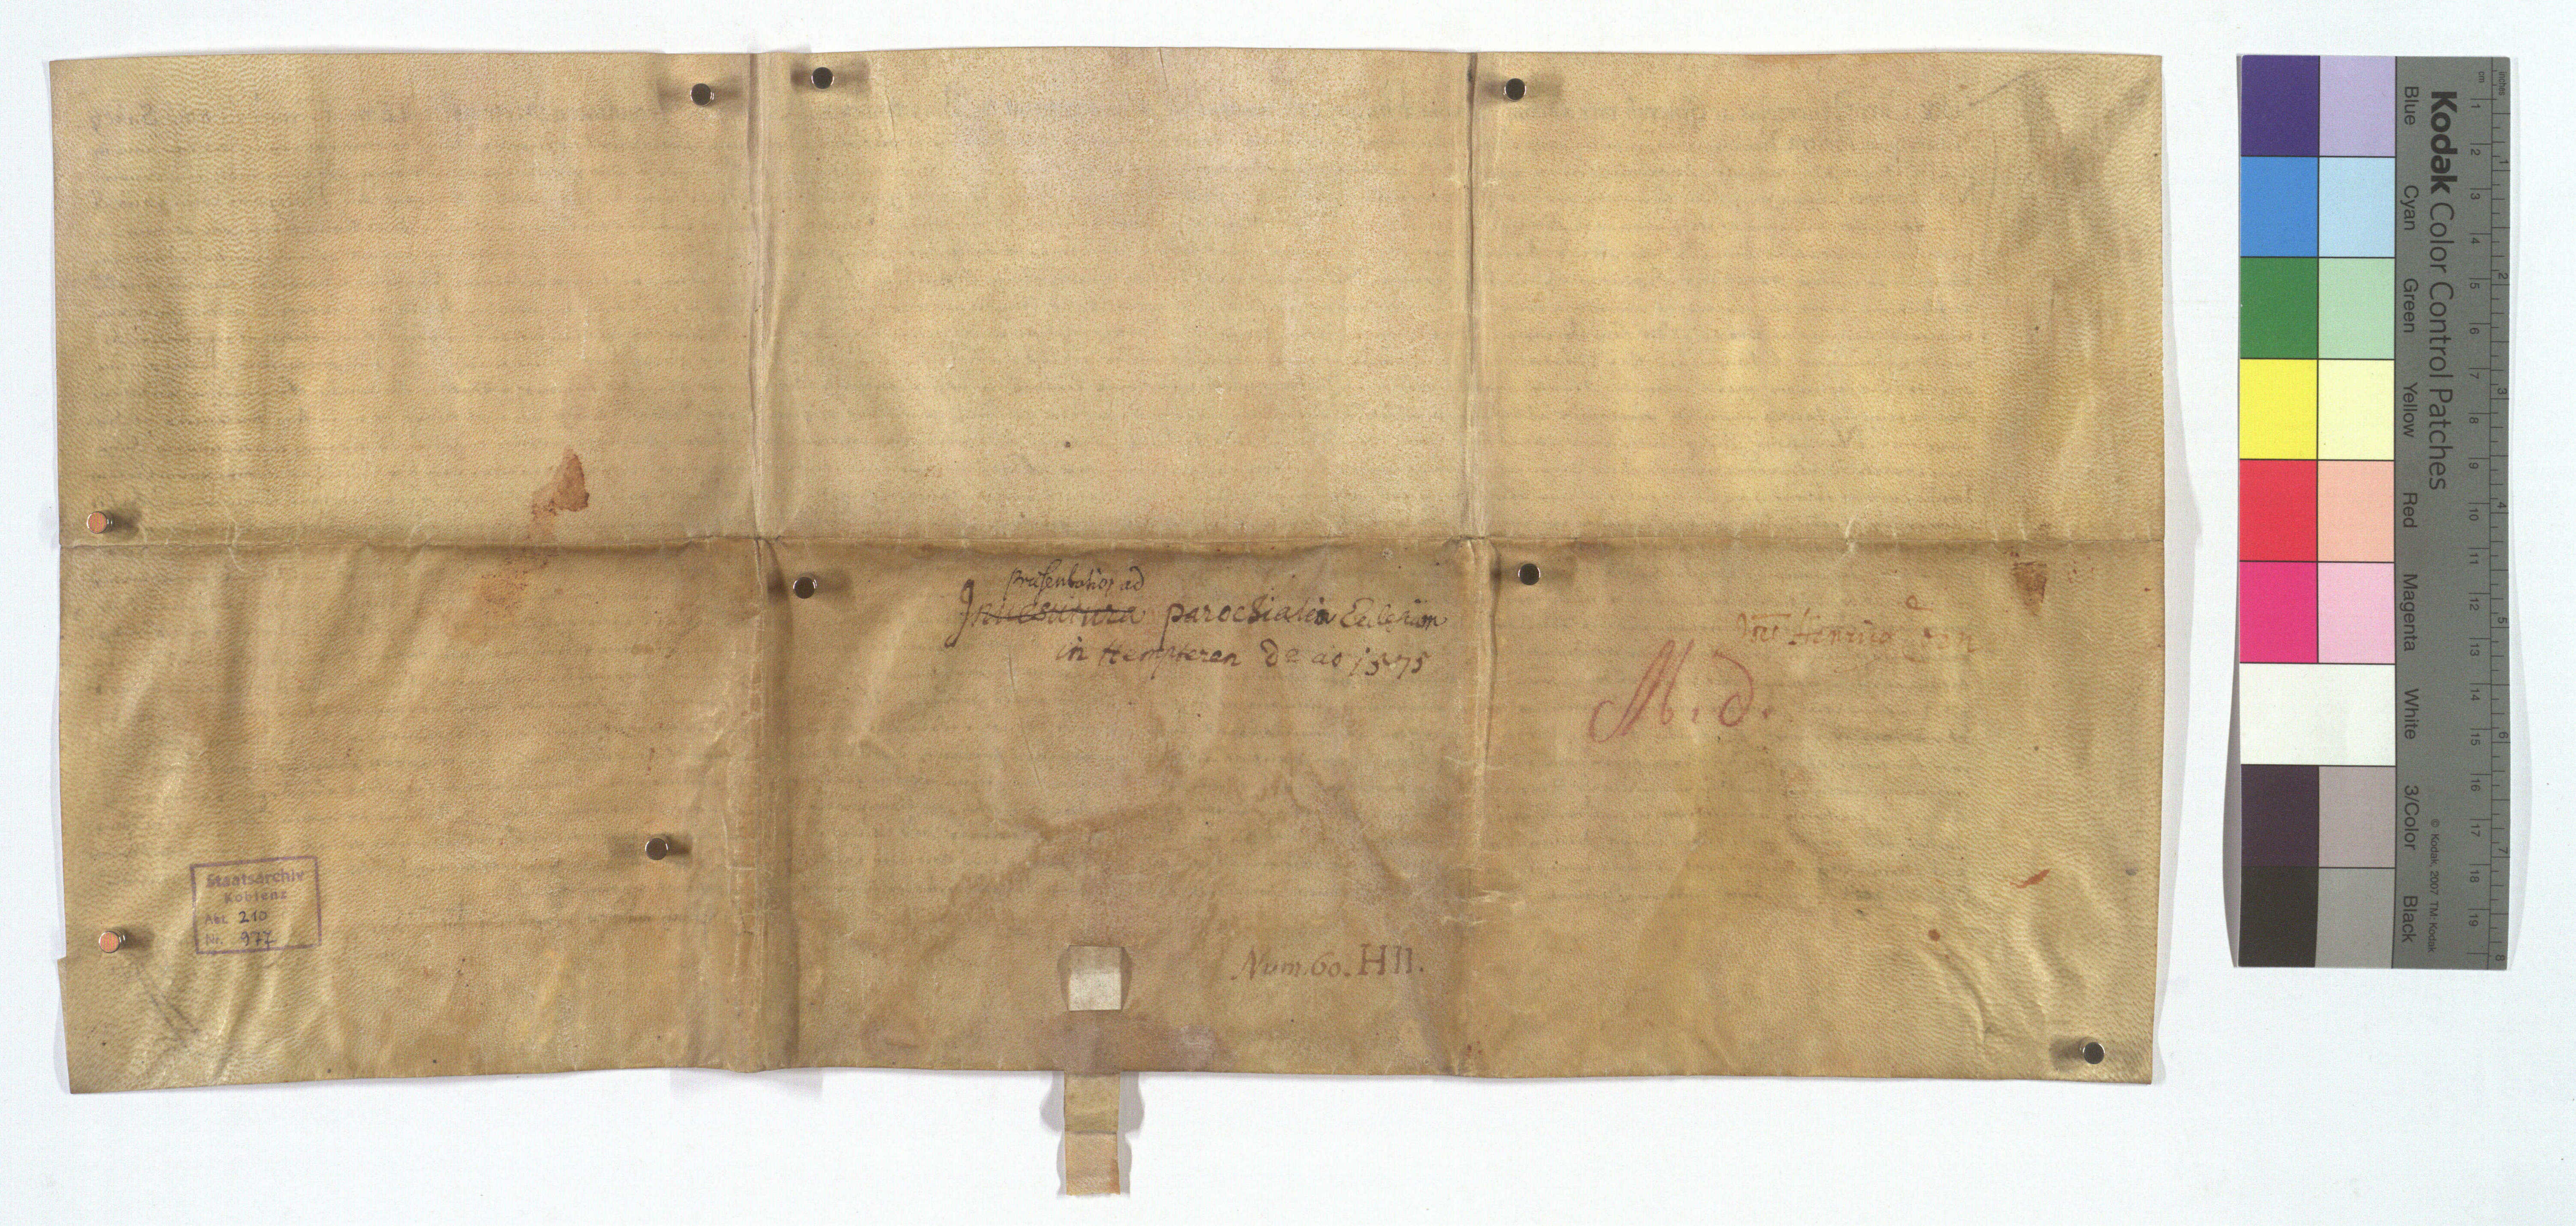 præsentatio ad
Inuestitura parochialem Ecclesiam
in Kempten de ao 1575
Henrico
M. d.
Num. 60. H 11.
Staatsarchiv
Koblenz
Abt. 210
Nr. 977
Kodak Color Control Patches
Blue Cyan Green Yellow Red Magenta White 3/Color Black
© Kodak, 2007 TM: Kodak
inches 1 2 3 4 5 6 7 8
cm 1 2 3 4 5 6 7 8 9 10 11 12 13 14 15 16 17 18 19